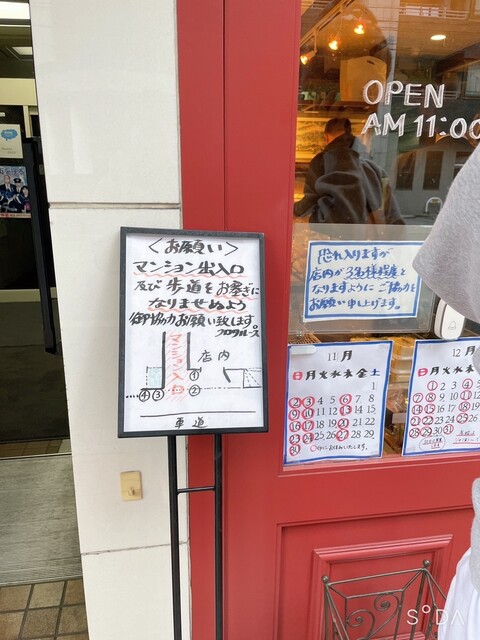 OPEN
AM 11:00
<お願い>
マンション出入口
及び歩道をお塞ぎに
なりませぬよう
御協力お願い致します
クロワループス
マンション入口
店内
①
②
④③
車道
恐れ入りますが
店内が3名様程度と
なりますように ご協力を
お願い申し上げます。
11月
日月火水木金土
1
2 3 4 5 6 7 8
9 10 11 12 13 14 15
16 17 18 19 20 21 22
23 24 25 26 27 28 29
30
12月
日月火水木金
1 2 3 4 5
7 8 9 10 11 12
14 15 16 17 18 19
21 22 23 24 25 26
28 29 30 31
SODA